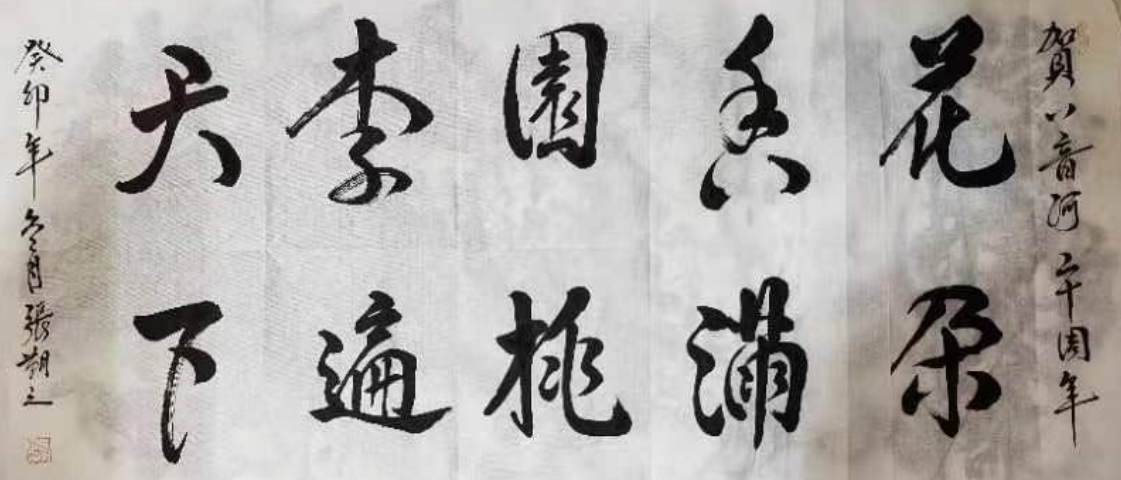 賀八音河六十周年
花朵
香滿
園桃
李遍
天下
癸卯年冬月張朝之